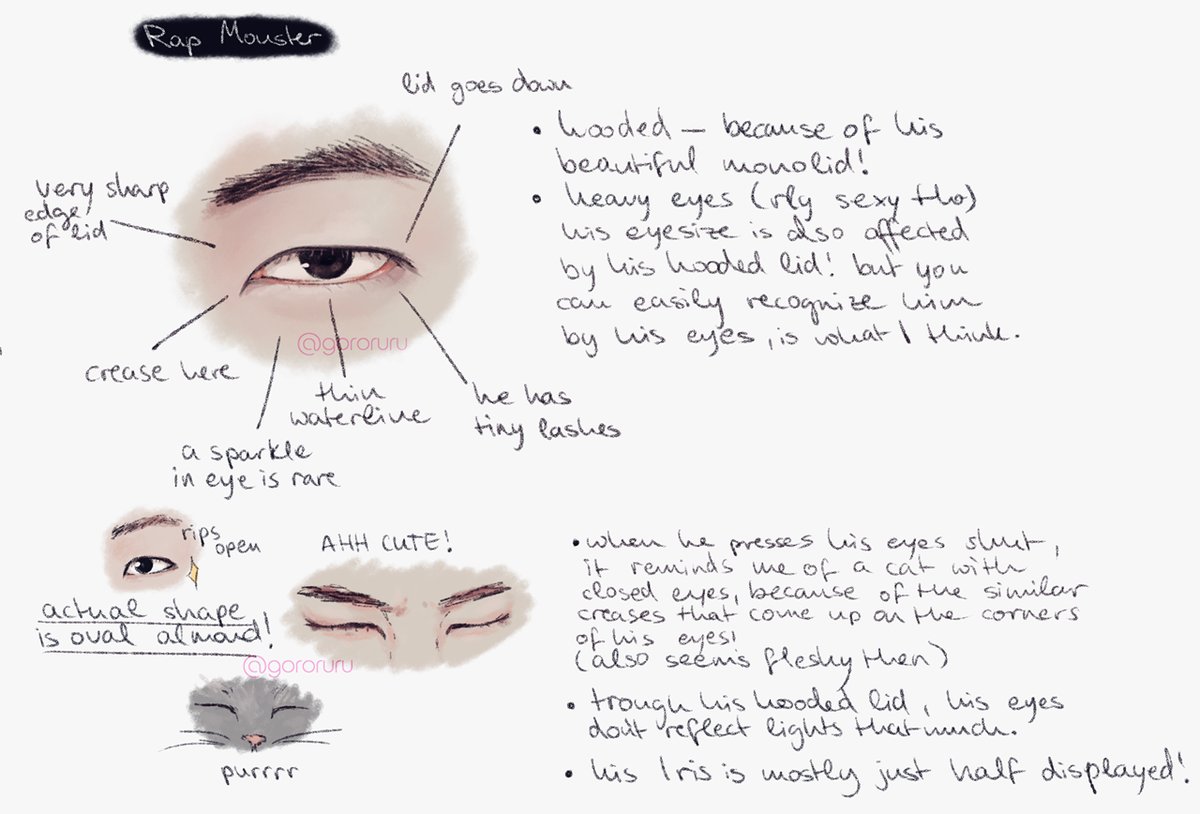 Rap Monster
lid goes down
very sharp
edge
of lid
crease here
a sparkle
in eye is rare
thin
waterline
he has
tiny lashes
@gororuru
• hooded — because of his
beautiful monolid!
• heavy eyes (rly sexy tho)
his eyesize is also affected
by his hooded lid! but you
can easily recognize him
by his eyes, is what I think.
rips
open
actual shape
is oval almond!
AHH CUTE!
@gororuru
purrrr
• when he presses his eyes shut,
it reminds me of a cat with
closed eyes, because of the similar
creases that come up on the corners
of his eyes!
(also seems fleshy then)
• trough his hooded lid, his eyes
don't reflect lights that much.
• his Iris is mostly just half displayed!